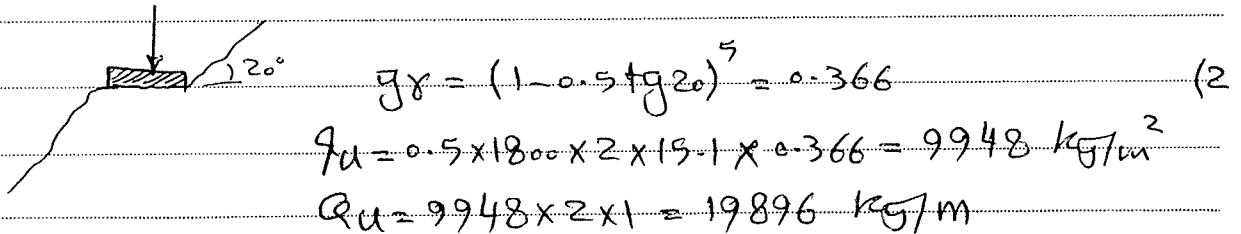 20° gγ = (1-0.5tg20)^5 = 0.366 (2
qu = 0.5×1800×2×15.1×0.366 = 9948 kg/m²
Qu = 9948×2×1 = 19896 kg/m